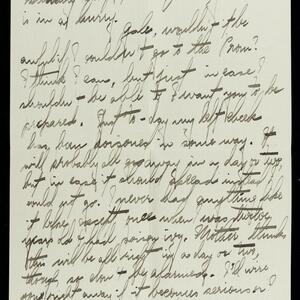 is in a hurry.
Gale, wouldn't it be
awful if I couldn't go to the Prom?
I think I can, but just in case I
shouldn't be able to I want you to be
prepared. Just to-day my left cheek
has been poisoned in some way. It
will probably all go away in a day or two,
but in case it should spread instead I
could not go. I never had anything like
it before except once when I was twelve
years old I had poison ivy. Mother thinks
I will be all right in a day or two,
though so don't be alarmed. I'll wire
you right away if it becomes serious or I